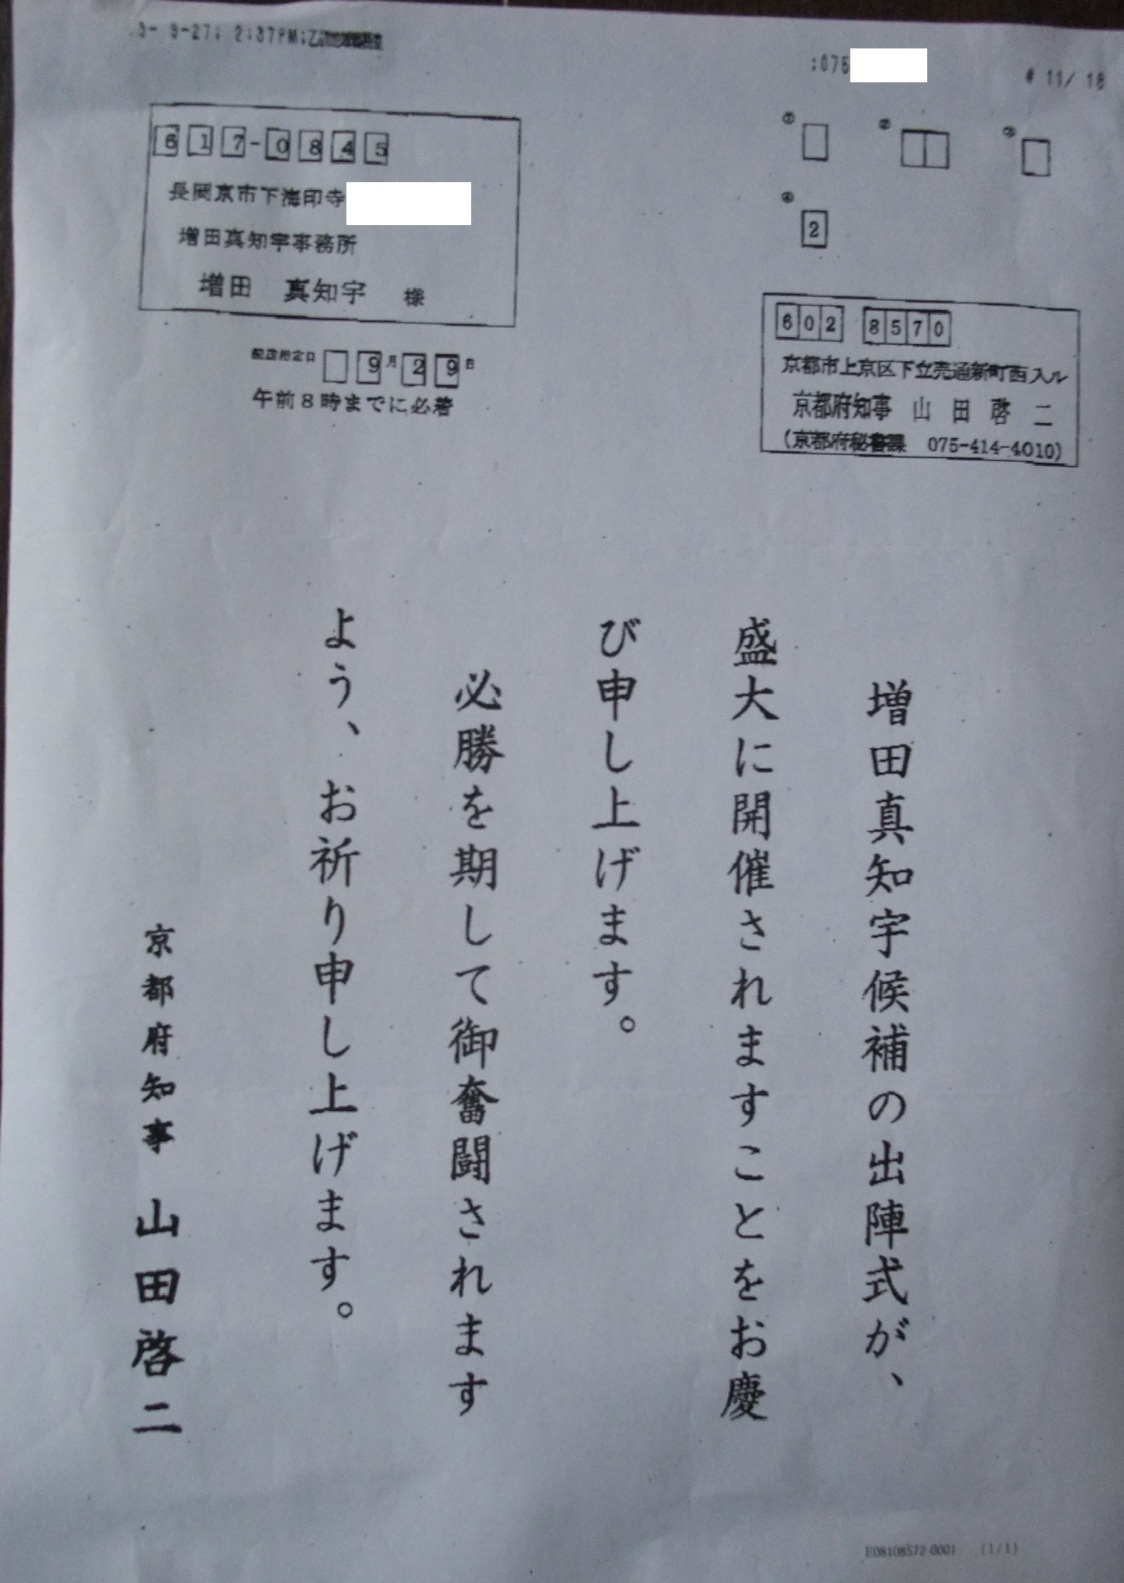 9-27; 2:37PM;乙
:075
# 11/ 18
617-0845
長岡京市下海印寺
増田真知宇事務所
増田 真知宇 様
① ② ③
④ 2
配達指定日 9月29日
午前8時までに必着
602 8570
京都市上京区下立売通新町西入ル
京都府知事 山田啓二
(京都府秘書課 075-414-4010)
増田真知宇候補の出陣式が、
盛大に開催されますことをお慶
び申し上げます。
必勝を期して御奮闘されます
よう、お祈り申し上げます。
京都府知事 山田啓二
E08108572-0001 (1/1)